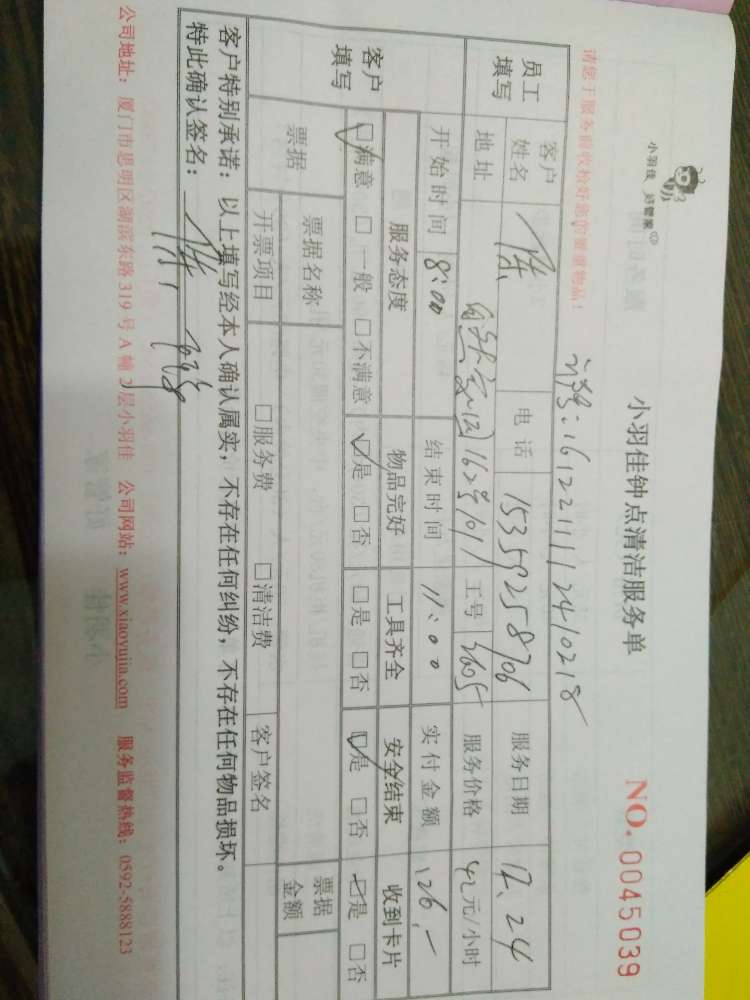 小羽佳 好管家
小羽佳钟点清洁服务单
NO. 0045039
请您于服务前收拾好您的贵重物品！
订单号:1612211112410218
员工填写
客户姓名 陈 电话 15359258706 服务日期 12.24
地址 162号1011 工号 2605 服务价格 42元/小时
开始时间 8:00 结束时间 11:00 实付金额 126.-
客户填写
服务态度 物品完好 工具齐全 安全结束 收到卡片
☑满意 □一般 □不满意 ☑是 □否 □是 □否 ☑是 □否 ☑是 □否
票据 票据名称 票据金额
开票项目 □服务费 □清洁费 客户签名
客户特别承诺：以上填写经本人确认属实，不存在任何纠纷，不存在任何物品损坏。
特此确认签名：陈
公司地址：厦门市思明区湖滨东路 319 号 A 幢 2 层小羽佳 公司网站：www.xiaoyujia.com 服务监督热线：0592-5888123